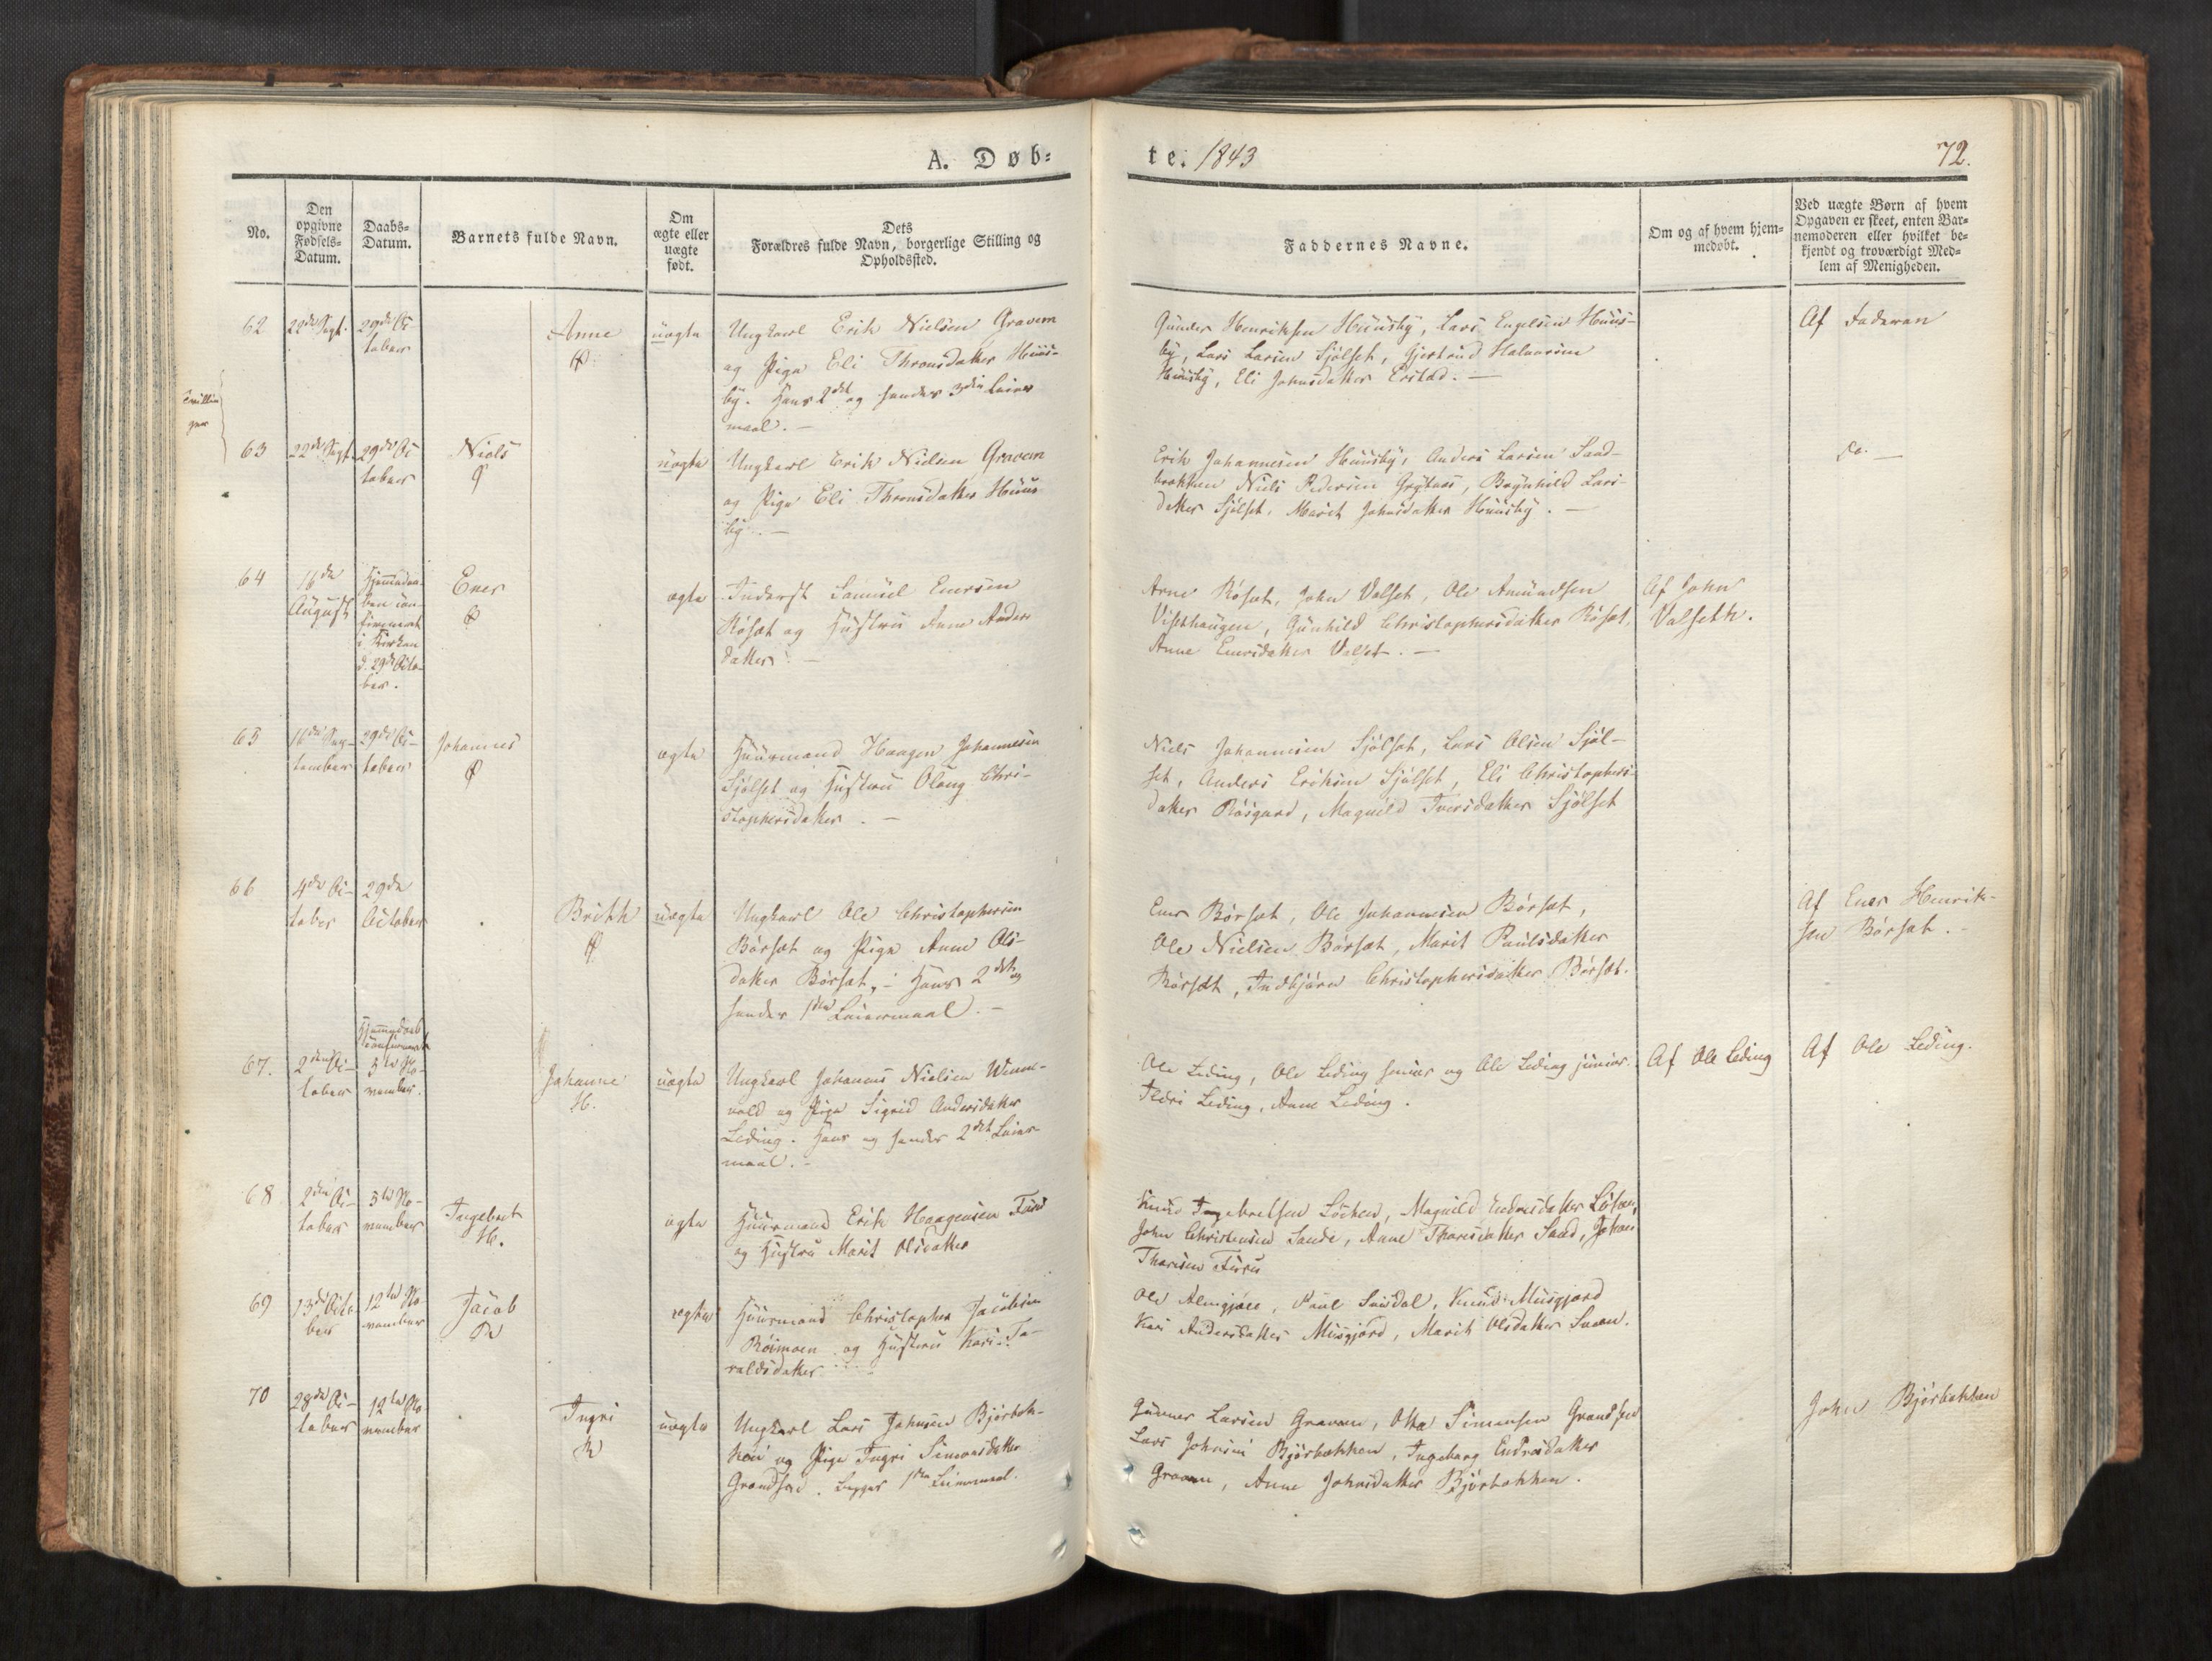 A. Døb-
te. 1843
72.
No.
Den
opgivne
Fødsels-
Datum.
Daabs-
Datum.
Barnets fulde Navn.
Om
ægte eller
uægte
født.
Dets
Forældres fulde Navn, borgerlige Stilling og
Opholdssted.
Faddernes Navne.
Om og af hvem hjem-
medøbt.
Ved uægte Børn af hvem
Opgaven er skeet, enten Bar-
nemoderen eller hvilket be-
kjendt og troværdigt Med-
lem af Menigheden.
62
22de Sept.
29de Oc-
tober
Anne
uægte
Ungkarl Erik Nielsen Gravem
og Pige Eli Thronsdatter Huus-
by. Hans 2det og hendes 3die Leier
maal. -
Gunder Henriksen Huusby, Lars Engelsen Huus-
by, Lars Larsen Sjølset, Gjertrud Halvorsen
Huusby, Eli Johnsdatter Erstad. -
Af Faderen
Tvillin
ger
63
22de Sept.
29de Oc
tober
Niels
uægte
Ungkarl Erik Nielsen Gravem
og Pige Eli Thronsdatter Huus
by. -
Erik Johannesen Huusby, Anders Larsen Sand-
brækken Niels Pedersen Grytnes, Brynhild Lars-
datter Sjølset, Marit Johnsdatter Huusby. -
do. -
64
16de
August
Hjemmedaa-
ben con-
firmeret
i Kirken
d. 29de Octo-
ber.
Ener
ægte
Inderst Samuel Enersen
Røsæt og Hustru Anne Anders
datter -
Arne Røsæt, John Valset, Ole Amundsen
Viskhaugen, Gunhild Christophersdatter Røsæt,
Anne Enersdatter Valset. -
Af John
Valseth.
65
16de Sep-
tember
29de Oc-
tober
Johannes
ægte
Huusmand Haagen Johannesen
Sjølset og Hustru Olaug Chri-
stophersdatter. -
Niels Johannesen Sjølset, Lars Olsen Sjøl-
set, Anders Eriksen Sjølset, Eli Christophers-
datter Røsgard, Magnild Iversdatter Sjølset
66
4de Oc-
tober
29de
October
Brith
uægte
Ungkarl Ole Christophersen
Børsæt og Pige Anne Ols-
datter Børsæt, - Hans 2det og
hendes 1ste Leiermaal. -
Ener Børsæt, Ole Johannesen Børsæt,
Ole Nielsen Børsæt, Marit Paulsdatter
Børsæt, Indbjørn Christophersdatter Børsæt.
Af Ener Henrik-
sen Børsæt. -
67.
2den Oc-
tober
Hjemmedaab
confirmeret
5te No-
vember.
Johanne
uægte
Ungkarl Johannes Nielsen Winne-
vold og Pige Sigrid Andersdatter
Leding. Hans og hendes 2det Leier-
maal. -
Ole Leding, Ole Leding senior og Ole Leding junior.
Leding, Anne Leding.
Af Ole Leding
Af Ole Leding.
68
2den Oc-
tober
5te No-
vember
Ingebret
ægte
Huusmand Erik Haagensen Furu
og Hustru Marit Olsdatter
Knud Ingebretsen Løcken, Magnild Endresdatter
John Christensen Sande, Anne Thoresdatter Sand, Johan
Thoresen Furu
69
13de Octo
ber
12te No-
vember
Jacob
ægte
Huusmand Christopher Jacobsen
Røimoen og Hustru Kari Ta-
raldsdatter
Ole Almgjære, Paul Sunsdal, Knud Musgjærd
Kari Andersdatter Musgjærd, Marit Olsdatter
70
28de Oc-
tober
12te No
vember
Ingri
uægte
Ungkarl Lars Johnsen Bjørbek-
ken og Pige Ingri Simonsdatter
Grandsen. Begges 1ste Leiermaal.
Gunner Larsen Gravem, Otto Simonsen Grandsen
Lars Johnsen Bjørbækken, Ingeborg Endresdatter
Gravem, Anne Johnsdatter Bjørbækken.
John Bjørbækken